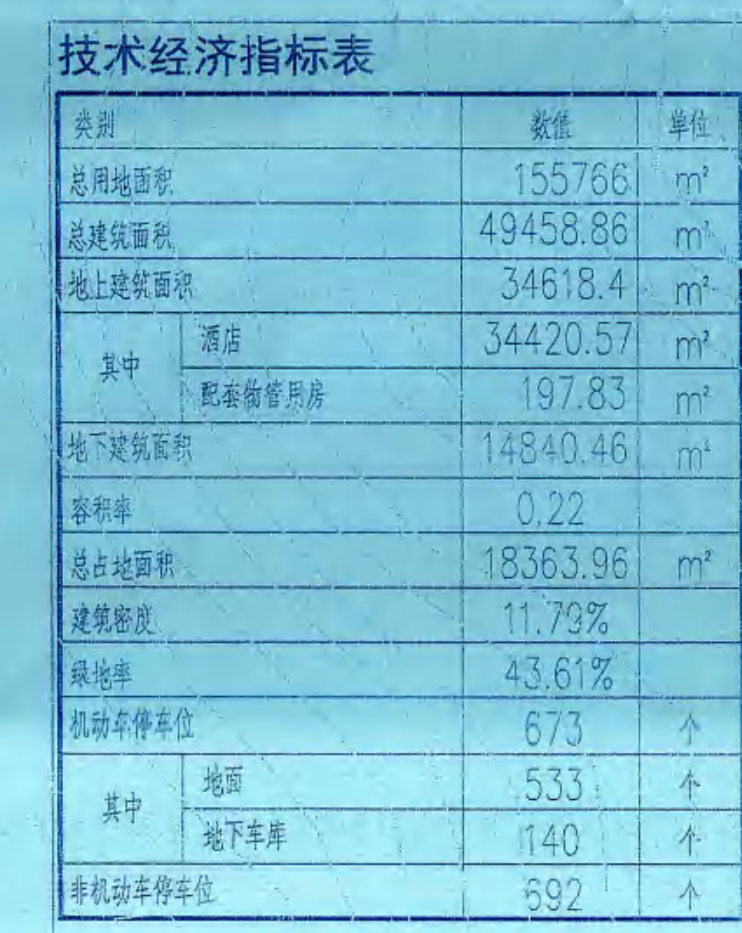 技术经济指标表
类别 数值 单位
总用地面积 155766 m²
总建筑面积 49458.86 m²
地上建筑面积 34618.4 m²
其中 酒店 34420.57 m²
配套物管用房 197.83 m²
地下建筑面积 14840.46 m²
容积率 0.22
总占地面积 18363.96 m²
建筑密度 11.79%
绿地率 43.61%
机动车停车位 673 个
其中 地面 533 个
地下车库 140 个
非机动车停车位 692 个